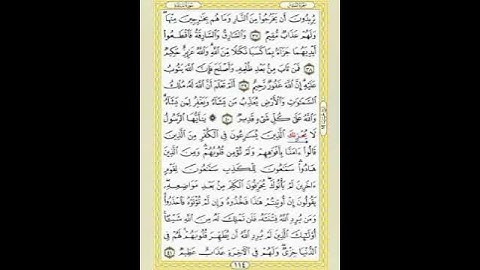 يُرِيدُونَ أَن يَخْرُجُوا۟ مِنَ ٱلنَّارِ وَمَا هُم بِخَٰرِجِينَ مِنْهَا ۖ
وَلَهُمْ عَذَابٌ مُّقِيمٌ ٣٧ وَٱلسَّارِقُ وَٱلسَّارِقَةُ فَٱقْطَعُوٓا۟
أَيْدِيَهُمَا جَزَآءًۢ بِمَا كَسَبَا نَكَٰلًا مِّنَ ٱللَّهِ ۗ وَٱللَّهُ عَزِيزٌ حَكِيمٌ
٣٨ فَمَن تَابَ مِنۢ بَعْدِ ظُلْمِهِۦ وَأَصْلَحَ فَإِنَّ ٱللَّهَ يَتُوبُ
عَلَيْهِ ۗ إِنَّ ٱللَّهَ غَفُورٌ رَّحِيمٌ ٣٩ أَلَمْ تَعْلَمْ أَنَّ ٱللَّهَ لَهُۥ مُلْكُ
ٱلسَّمَٰوَٰتِ وَٱلْأَرْضِ يُعَذِّبُ مَن يَشَآءُ وَيَغْفِرُ لِمَن يَشَآءُ ۗ
وَٱللَّهُ عَلَىٰ كُلِّ شَىْءٍ قَدِيرٌ ٤٠ ۞ يَٰٓأَيُّهَا ٱلرَّسُولُ
لَا يَحْزُنكَ ٱلَّذِينَ يُسَٰرِعُونَ فِى ٱلْكُفْرِ مِنَ ٱلَّذِينَ
قَالُوٓا۟ ءَامَنَّا بِأَفْوَٰهِهِمْ وَلَمْ تُؤْمِن قُلُوبُهُمْ ۛ وَمِنَ ٱلَّذِينَ
هَادُوا۟ ۛ سَمَّٰعُونَ لِلْكَذِبِ سَمَّٰعُونَ لِقَوْمٍ
ءَاخَرِينَ لَمْ يَأْتُوكَ ۖ يُحَرِّفُونَ ٱلْكَلِمَ مِنۢ بَعْدِ مَوَاضِعِهِۦ ۖ
يَقُولُونَ إِنْ أُوتِيتُمْ هَٰذَا فَخُذُوهُ وَإِن لَّمْ تُؤْتَوْهُ فَٱحْذَرُوا۟ ۚ
وَمَن يُرِدِ ٱللَّهُ فِتْنَتَهُۥ فَلَن تَمْلِكَ لَهُۥ مِنَ ٱللَّهِ شَيْـًٔا ۚ
أُو۟لَٰٓئِكَ ٱلَّذِينَ لَمْ يُرِدِ ٱللَّهُ أَن يُطَهِّرَ قُلُوبَهُمْ ۚ لَهُمْ فِى
ٱلدُّنْيَا خِزْىٌ ۖ وَلَهُمْ فِى ٱلْـَٔاخِرَةِ عَذَابٌ عَظِيمٌ ٤١
١١٤